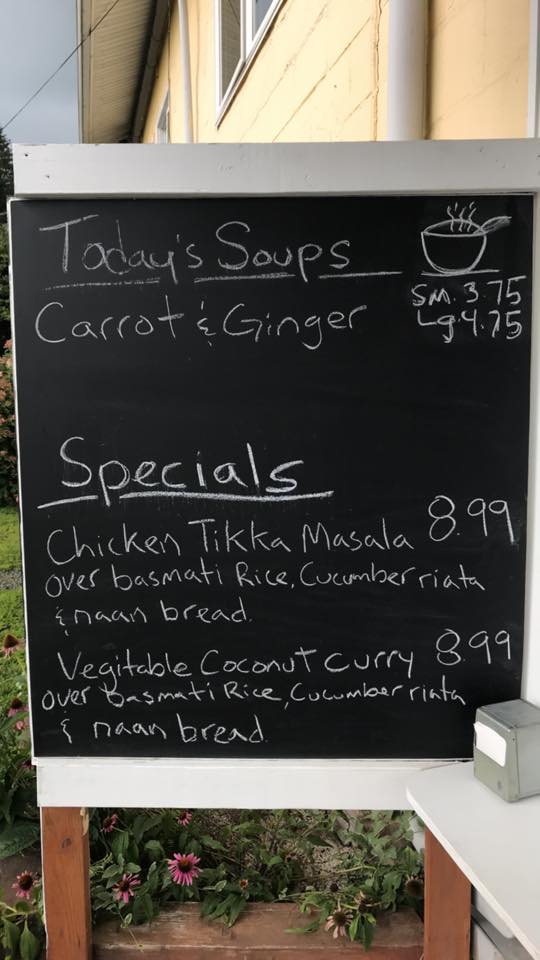 Today's Soups
Sm. 3.75
Carrot & Ginger
Lg. 4.75
Specials
Chicken Tikka Masala 8.99
over basmati Rice, Cucumber riata
& naan bread.
Vegitable Coconut curry 8.99
over basmati Rice, Cucumber riata
& naan bread